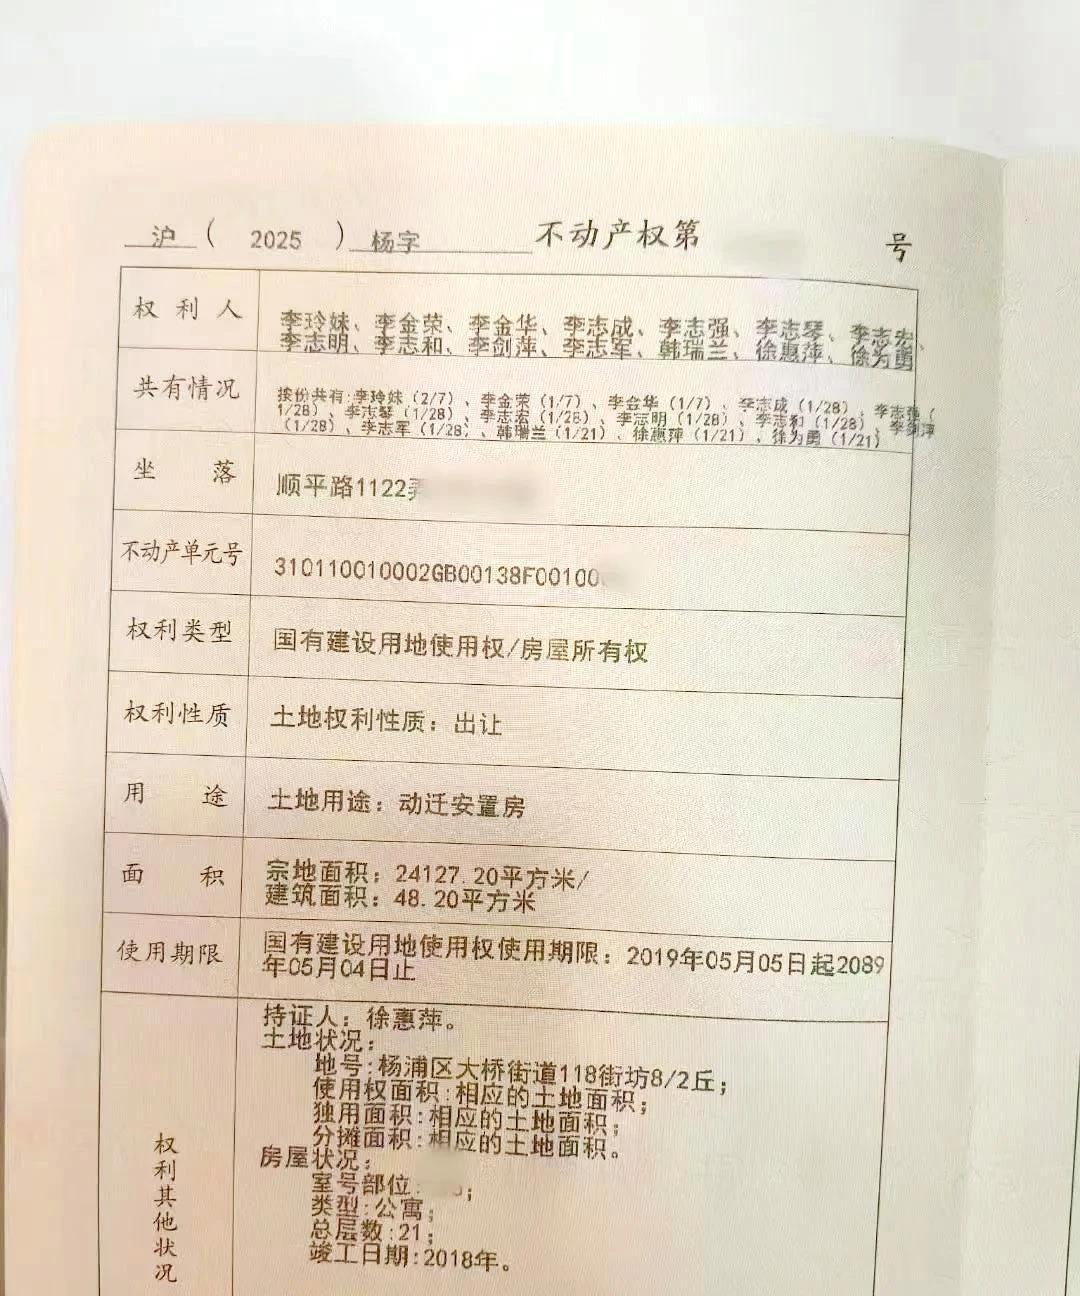 沪 ( 2025 ) 杨字 不动产权第 号
权利人
李玲妹、李金荣、李金华、李志成、李志强、李志琴、李志宏、
李志明、李志和、李剑萍、李志军、韩瑞兰、徐惠萍、徐为勇
共有情况
按份共有:李玲妹（2/7）、李金荣（1/7）、李金华（1/7）、李志成（1/28）、李志强（
1/28）、李志琴（1/28）、李志宏（1/28）、李志明（1/28）、李志和（1/28）、李剑萍
（1/28）、李志军（1/28）、韩瑞兰（1/21）、徐惠萍（1/21）、徐为勇（1/21）
坐落
顺平路1122弄
不动产单元号
310110010002GB00138F00100
权利类型
国有建设用地使用权/房屋所有权
权利性质
土地权利性质：出让
用途
土地用途：动迁安置房
面积
宗地面积：24127.20平方米/
建筑面积：48.20平方米
使用期限
国有建设用地使用权使用期限：2019年05月05日起2089
年05月04日止
权利其他状况
持证人：徐惠萍。
土地状况：
地号:杨浦区大桥街道118街坊8/2丘；
使用权面积:相应的土地面积；
独用面积:相应的土地面积；
分摊面积:相应的土地面积。
房屋状况：
室号部位: ；
类型:公寓；
总层数:21；
竣工日期:2018年。